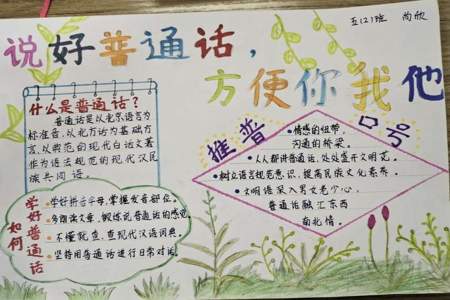 五(2)班 尚欣
说好普通话，
方便你我他
什么是普通话？
普通话是以北京语言为
标准音，以北方话为基础方
言，以典范的现代白话文著
作为语法规范的现代汉民
族共同语。
如何学好普通话
学好拼音字母，掌握发音部位。
多朗读文章，锻炼说普通话的感觉
不懂就查，查现代汉语词典。
坚持用普通话进行日常对话
推普口号
情感的纽带，
沟通的桥梁。
人人都讲普通话，处处盛开文明花。
树立语言规范意识，提高民族文化素养。
文明语深入男女老少心，
普通话融汇东西
南北情。